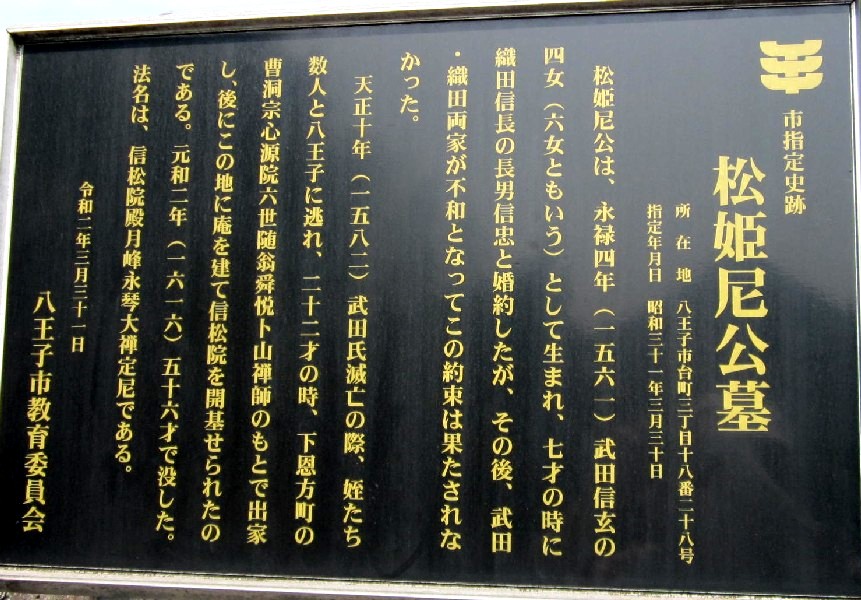 市指定史跡
松姫尼公墓
所在地 八王子市台町三丁目十八番二十八号
指定年月日 昭和三十一年三月三十日
松姫尼公は、永禄四年（一五六一）武田信玄の
四女（六女ともいう）として生まれ、七才の時に
織田信長の長男信忠と婚約したが、その後、武田
・織田両家が不和となってこの約束は果たされな
かった。
天正十年（一五八二）武田氏滅亡の際、姪たち
数人と八王子に逃れ、二十二才の時、下恩方町の
曹洞宗心源院六世随翁舜悦卜山禅師のもとで出家
し、後にこの地に庵を建て信松院を開基せられたの
である。元和二年（一六一六）五十六才で没した。
法名は、信松院殿月峰永琴大禅定尼である。
令和二年三月三十一日
八王子市教育委員会